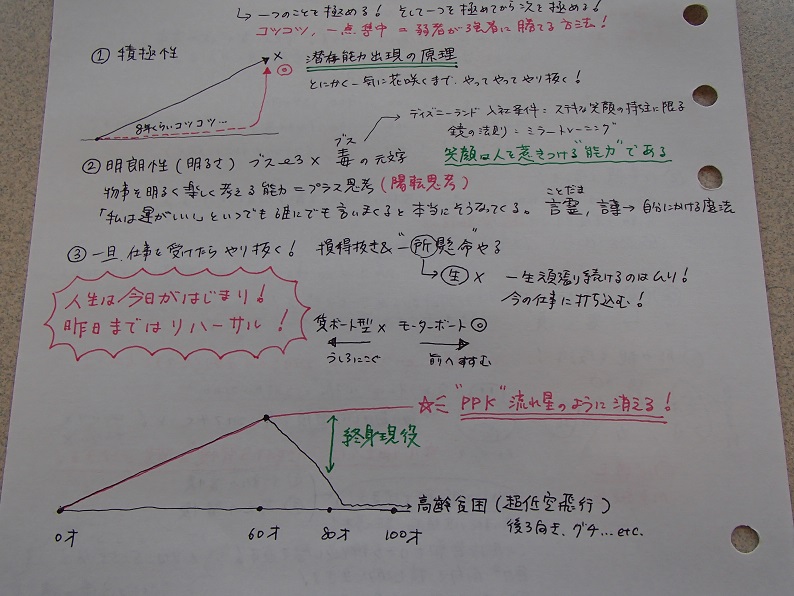 ↳ 一つのことを極める! そして一つを極めてから次を極める!
コツコツ、一点集中 = 弱者が強者に勝てる方法!
① 積極性 × ◎ 潜在能力出現の原理
とにかく一気に花咲くまで、やってやってやり抜く!
8年くらいコツコツ…
ディズニーランド 入社条件 = ステキな笑顔の持主に限る
鏡の法則 = ミラートレーニング
② 明朗性 (明るさ) ブスーっ × 毒の元文字 笑顔は人を惹きつける"能力"である
ブス
物事を明るく楽しく考える能力 = プラス思考 (陽転思考)
「私は運がいい」といつでも誰にでも言いまくると本当にそうなってくる。 言霊, 言葉→自分にかける魔法
ことだま
③ 一旦、仕事を受けたら やり抜く! 損得抜き& "一所懸命"やる
生 × 一生頑張り続けるのはムリ!
今の仕事に打ち込む!
人生は今日がはじまり!
昨日まではリハーサル!
貸ボート型 × モーターボート ◎
うしろにこぐ 前へすすむ
☆ "PPK" 流れ星のように消える!
終身現役
高齢貧困 (超低空飛行)
後ろ向き、グチ…etc.
0才 60才 80才 100才